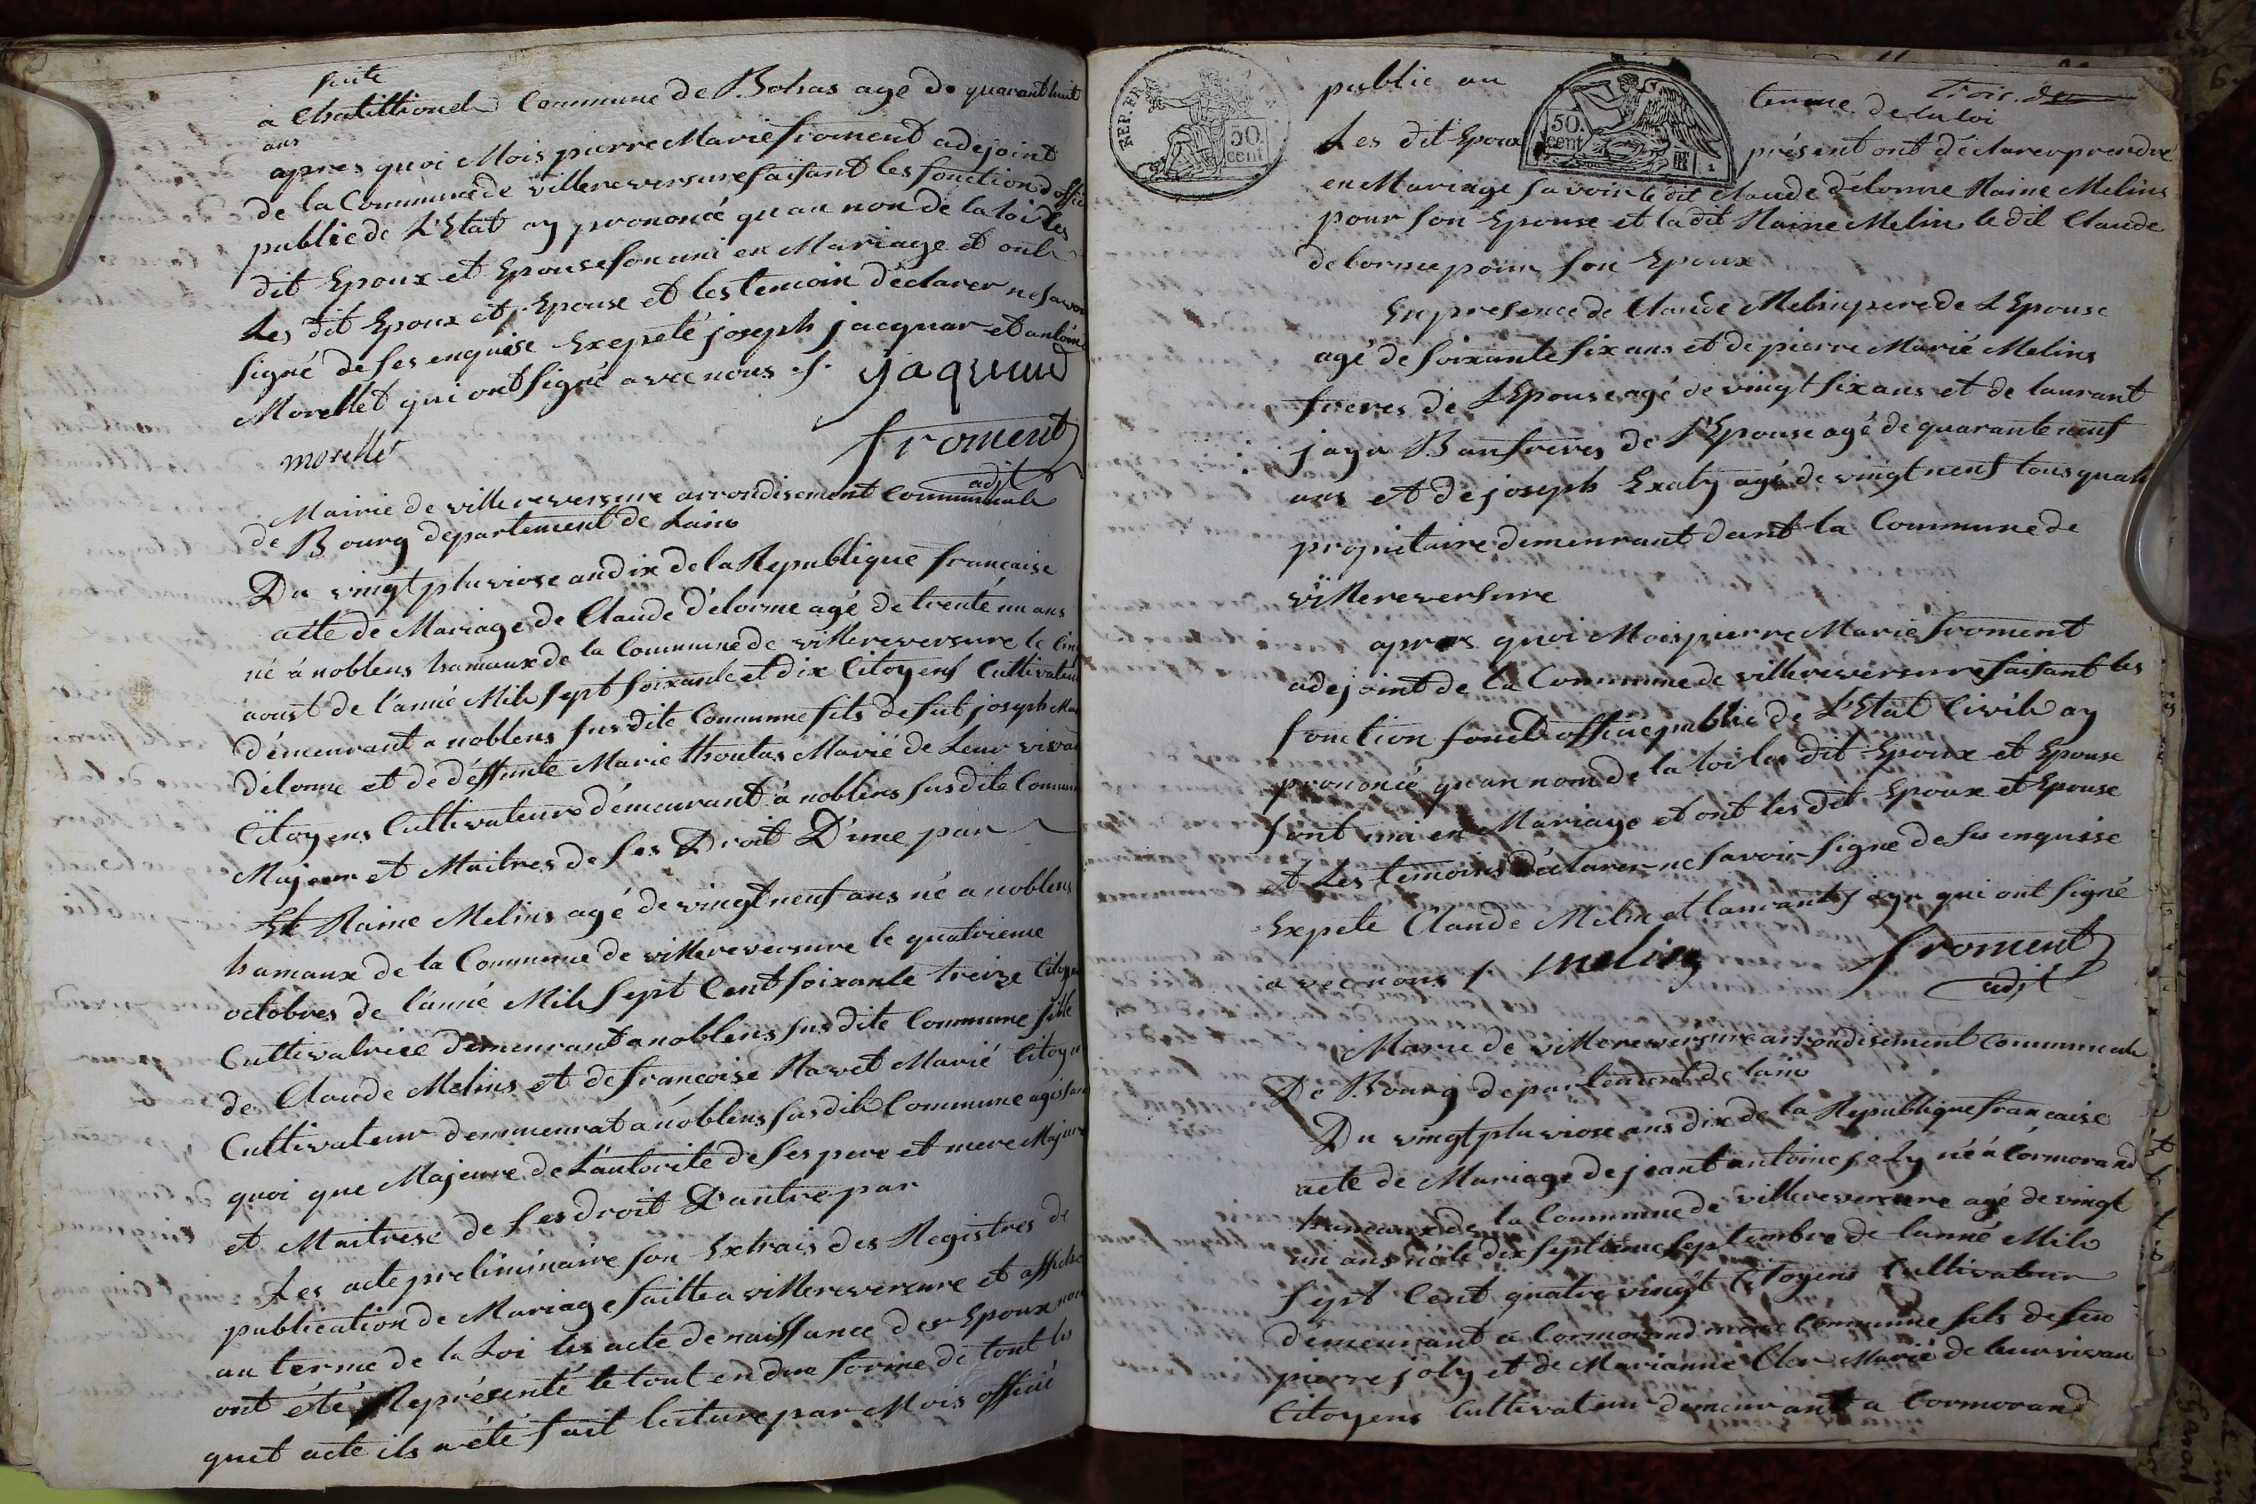 suite
a Chatillionel Commune de Bohas agé de quarant huit
ans
apres quoi Mois pierre Marie froment adejoint
de la Commune de villereversure faisant les fonction d'offici
public de L'Etat ay prononcé qu au non de la loi les
dit Epoux et Epouse son uni en Mariage et ont
Les dit Epoux et Epouse et les temoin déclarer ne savoir
signé de ses enquise Exepeté joseph jacquar et antoine
Morellet qui ont signé avec nous ./.
jaquard
morellé
froment
adjt
Mairie de villereversure arrondisement Communale
de Bourg departement de Lain
Du vingt pluviose an dix de la Republique française
acte de Mariage de Claude délorme agé de trenté un ans
né à noblens hamaux de la Commune de villereversure le Cinq
aoust de l'anné Mile sept soixante et dix Citoyens Cultivateur
démeurant a noblens susdite Commune fils de fut joseph Marie
délorme et de déffunte Marie thoutas Marié de Leur vivant
Citoyens Cultivateurs démeurant à noblens susdite Commune
Majeur et Maitres de ses Droit D'une par
Et Raine Melins agé de vingt neuf ans né a noblens
hamaux de la Commune de villereversure le quatrieme
octobres de l'anné Mile sept Cent soixante treize Citoyen
Cultivatrice demeurant a noblens susdite Commune fille
de Claude Melins et de françoise Ravet Marié Citoyen
Cultivateur demmeurat a noblens susdite Commune agissant
quoi que Majeure de L'autorité de ses pere et mere Majure
et Maitrese de ses droit D'autre par
Les acte preliminaire son Extrais des Registres de
publication de Mariage faitte a villereversure et affiché
au terme de la Loi les acte de naissance des Epoux nous
ont été Représenté le tout en due forme de tout les
quet acte ils a été fait lecture par Mois officié
public au terme de la loi
Trois
REP. FRA
50. cent
50. cent
Les dit Epoux présent ont déclarer prendre
en Mariage savoir le dit Claude délorme Raine Melins
pour son Epouse et la dit Raine Melin le dit Claude
delorme pour son Epoux
En presence de Claude Melin pere de L'Epouse
agé de soixante six ans et de pierre Marié Melins
freres de L'Epouse agé de vingt six ans et de laurant
jayr Baufreres de l'Epouse agé de quarante neuf
ans et de joseph agé de vingt neuf tous quatre
propietaire demeurant dant la Commune de
villereversure
apres quoi Mois pierre Marie froment
adejoint de la Commune de villereversure faisant les
fonction fonct d'officié public de L'Etat Civile ay
prononcé qu au nom de la loi les dit Epoux et Epouse
sont uni en Mariage et ont les dit Epoux et Epouse
et Les temoins déclarer ne savoir signé de ses enquise
Expete Claude Melin et laurant jayr qui ont signé
avec nous /.
melin
froment
adjt
Marie de villereversure arrondisement Communale
De Bourg departement de lain
Du vingt pluviose ans dix de la Republique française
acte de Mariage de jeant antoine joly né à Cormorand
hameaux de la Commune de villereversure agé de vingt
un ans né le dix septieme septembre de l'anné Mile
sept Cent quatre vingt Citoyens Cultivateur
démeurant à Cormorand meme Commune fils de feu
pierre joly et de Marianne Cler Marié de leur vivan
Citoyens Cultivateur demeurant a Cormorand